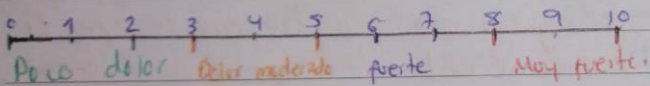 0 1 2 3 4 5 6 7 8 9 10
Poco dolor Dolor moderado fuerte Muy fuerte.